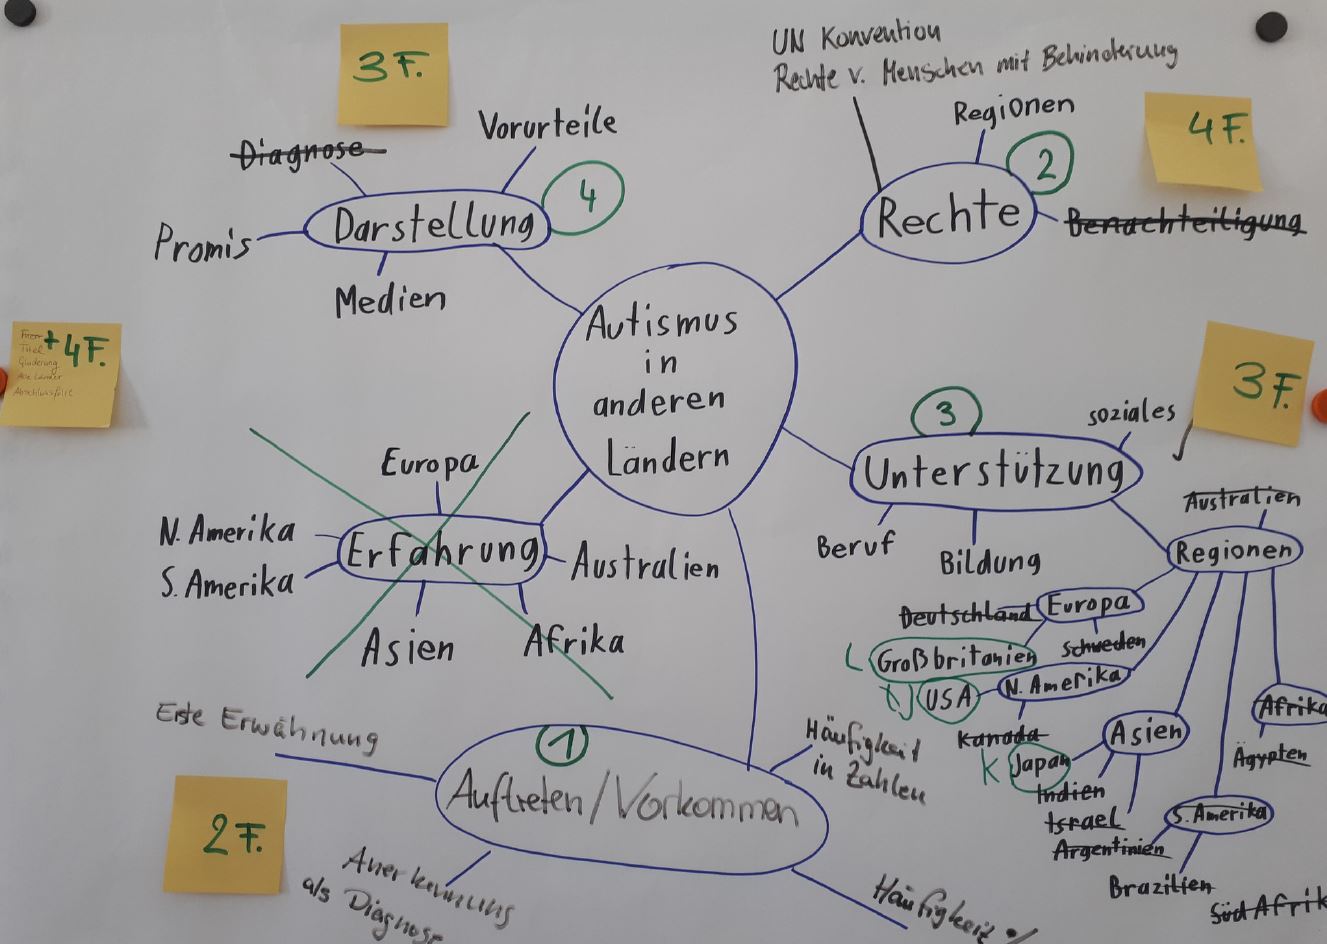 3 F.
UN Konvention
Rechte v. Menschen mit Behinderung
Vorurteile
Diagnose
4
Promis
Darstellung
Medien
Regionen
2
4 F.
Rechte
Benachteiligung
Autismus
in
anderen
Ländern
+4F.
Titel
3 F.
3
soziales
Unterstützung
Beruf
Bildung
Europa
N. Amerika
S. Amerika
Erfahrung
Australien
Asien
Afrika
Australien
Regionen
Deutschland
Europa
Schweden
L
Großbritanien
USA
N. Amerika
Kanada
Asien
K
Japan
Indien
Israel
Argentinien
Afrika
Ägypten
S. Amerika
Brazilien
Süd Afrik
Erste Erwähnung
1
Auftreten/Vorkommen
Häufigkeit
in Zahlen
2 F.
Anerkennung
als Diagnose
Häufigkeit %